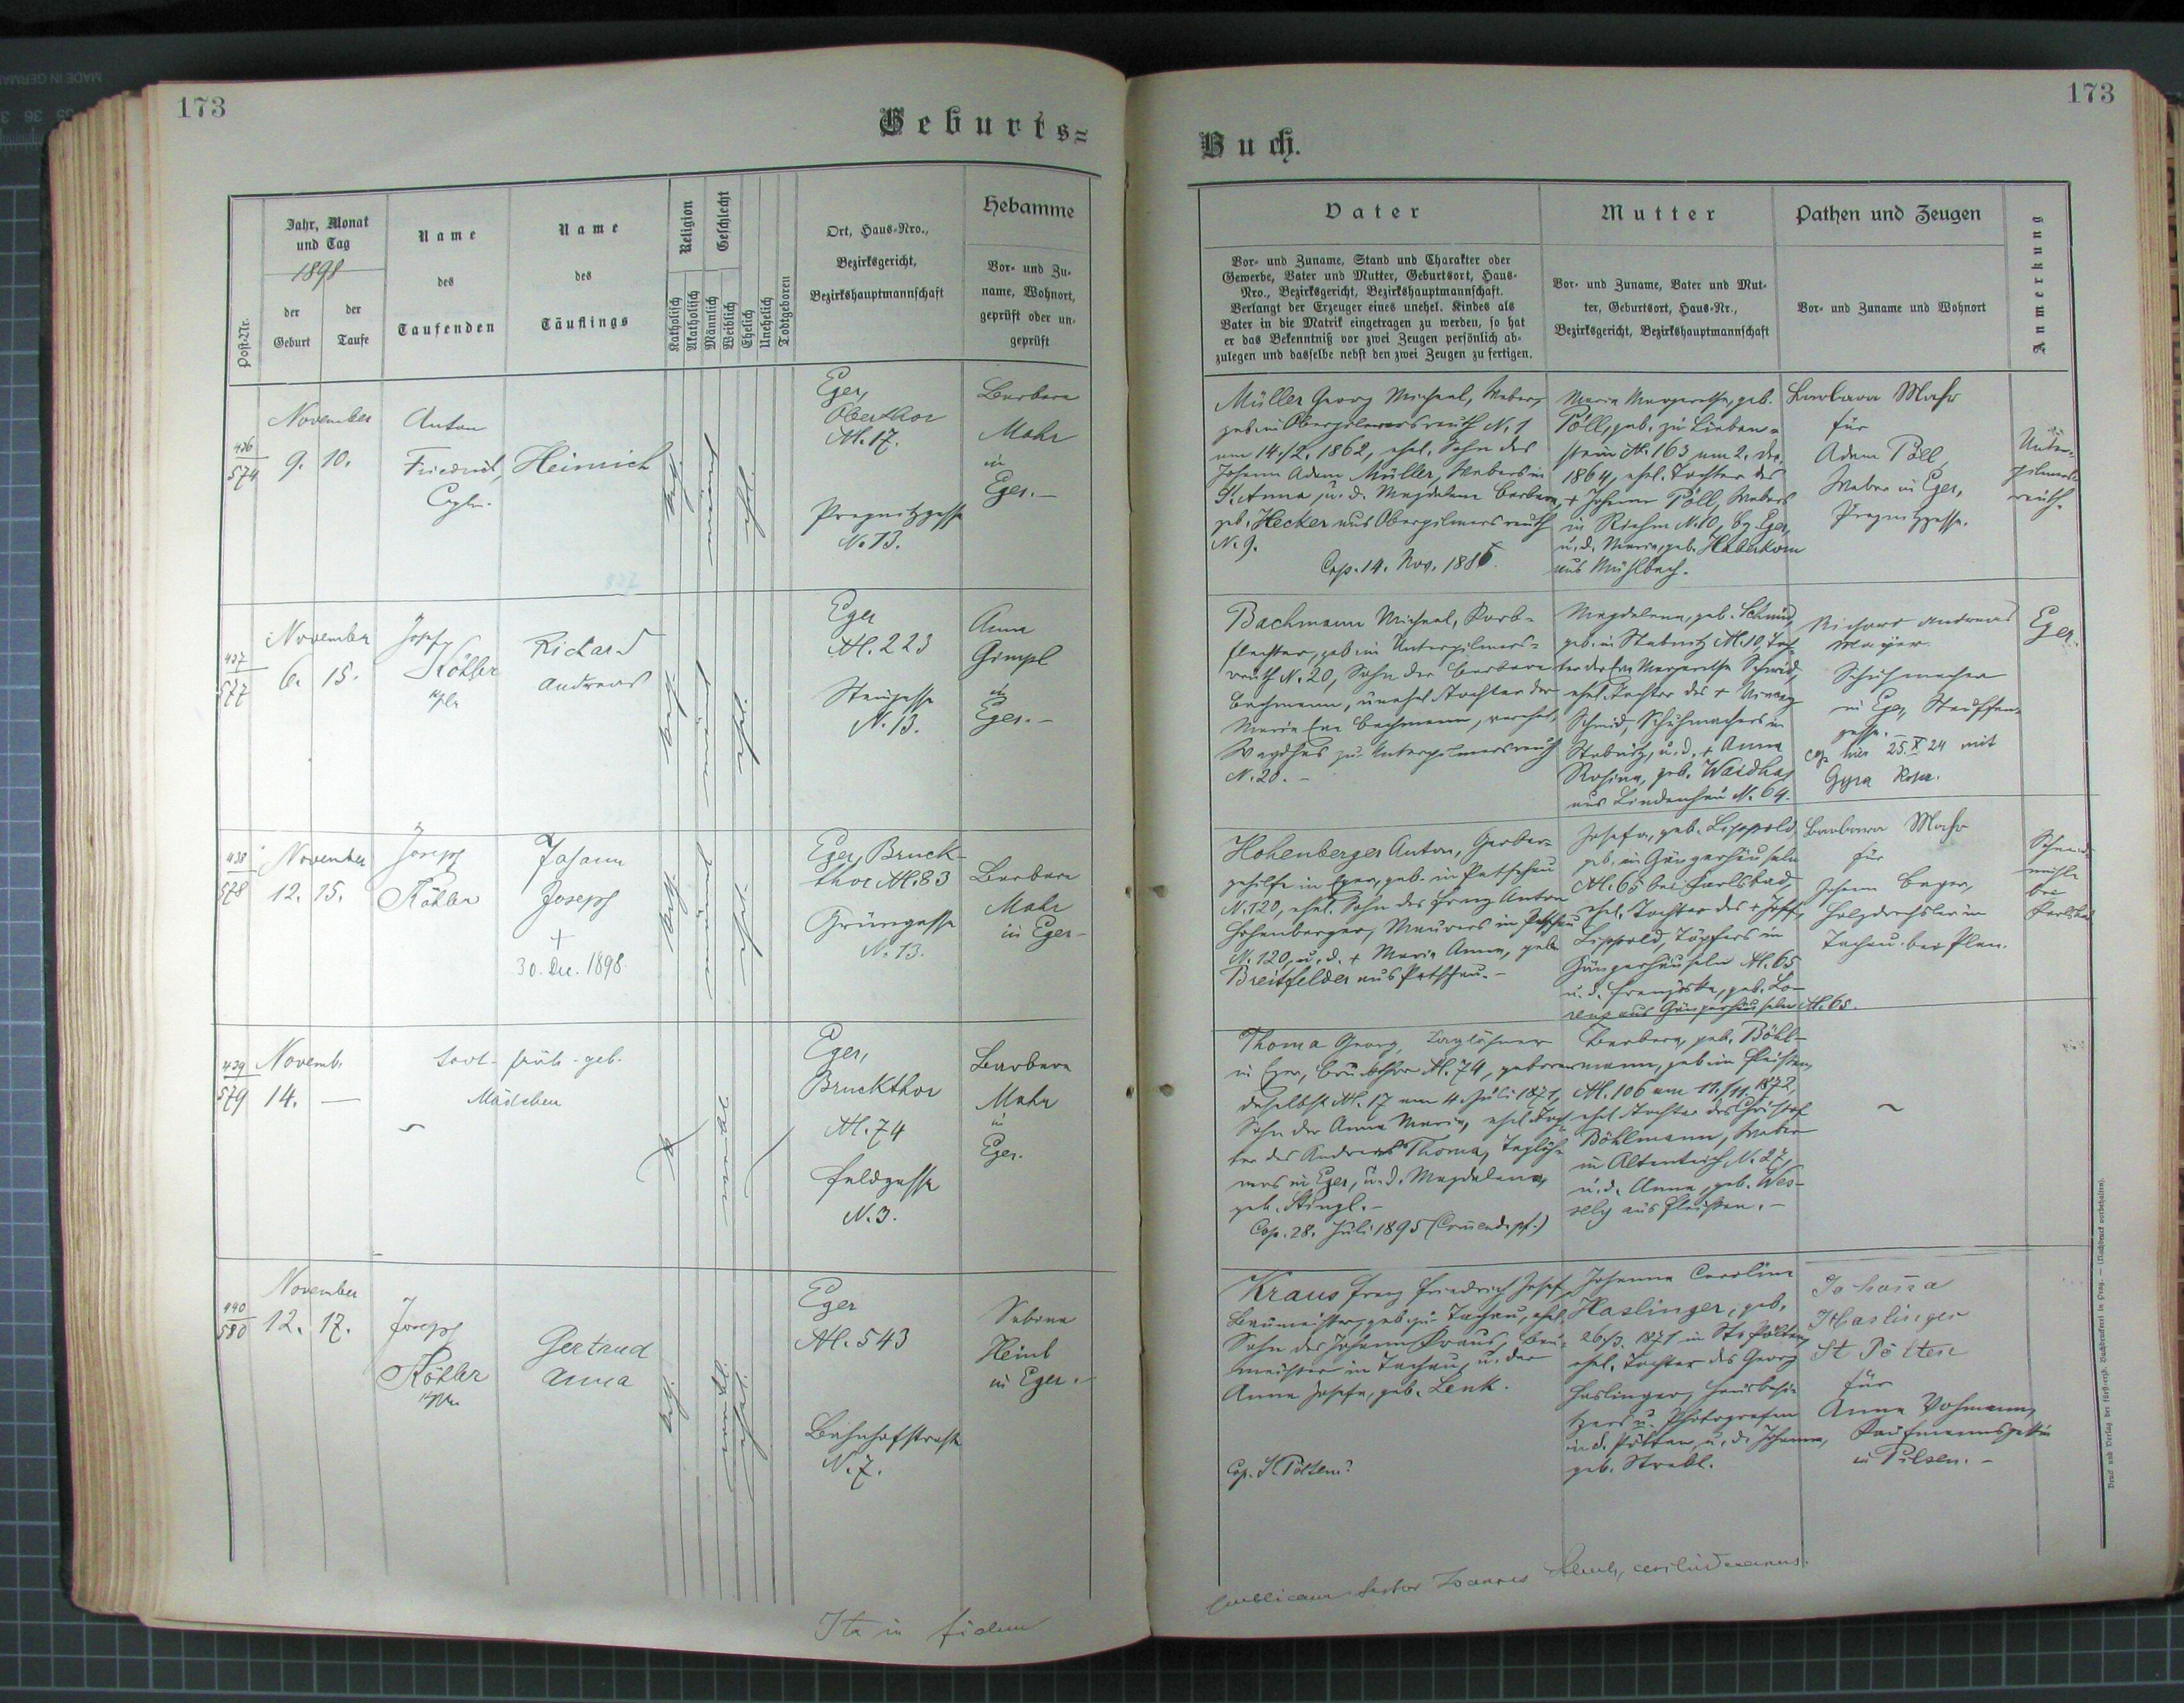 173
Geburts=
Post-Nr.
Jahr, Monat
und Tag
1898
der
Geburt
der
Taufe
Name
des
Taufenden
Name
des
Täuflings
Religion
Geschlecht
Katholisch
Akatholisch
Männlich
Weiblich
Ehelich
Unehelich
Todtgeboren
Ort, Haus-Nro.,
Bezirksgericht,
Bezirkshauptmannschaft
Hebamme
Vor- und Zu-
name, Wohnort,
geprüft oder un-
geprüft
436
574
November
9. 10.
Anton
Friedrich,
Heinrich
Eger,
Oberthor
N. 17.
N. 13.
Barbara
Mahr
in
Eger.–
437
577
November
6. 15.
Josef
Köhler
Richard
Andreas
Eger
N. 223
N. 13.
Anna
Gimpl
in
Eger.–
438
578
November
12. 15.
Joseph
Köhler
Johann
Joseph
+
30. Dec. 1898.
Eger, Bruck-
thor N. 83
Grüngasse
N. 13.
Barbara
Mahr
in Eger–
439
579
Novemb.
14. –
todt- früh-geb.
Mädchen
Eger,
Bruckthor
N. 74
Feldgasse
N. 3.
Barbara
Mahr
in
Eger.
440
580
November
12. 17.
Joseph
Köhler
Gertrud
Anna
Eger
N. 543
Bahnhofstrasse
N. 7.
Heinl
in Eger.–
Ita in fidem
173
Buch.
Vater
Vor- und Zuname, Stand und Charakter oder
Gewerbe, Vater und Mutter, Geburtsort, Haus-
Nro., Bezirksgericht, Bezirkshauptmannschaft.
Verlangt der Erzeuger eines unehel. Kindes als
Vater in die Matrik eingetragen zu werden, so hat
er das Bekenntniß vor zwei Zeugen persönlich ab-
zulegen und dasselbe nebst den zwei Zeugen zu fertigen.
Mutter
Vor- und Zuname, Vater und Mut-
ter, Geburtsort, Haus-Nr.,
Bezirksgericht, Bezirkshauptmannschaft
Pathen und Zeugen
Vor- und Zuname und Wohnort
Anmerkung
Müller Georg Michael, Weber,
geb. in Oberpilmersreuth N. 1
am 14./2. 1862, ehel. Sohn des
Johann Adam Müller, Webers in
St. Anna, u. d. Magdalena Barbara,
geb. Hecker aus Oberpilmersreuth
N. 9.
Cop. 14. Nov. 1886.
Maria Margaretha, geb.
Pöll, geb. zu Lieben-
stein N. 163 am 2. Dez.
1864, ehel. Tochter des
+ Johann Pöll, Webers
in Riehm N. 10, bz. Eger,
u. d. Maria, geb. Haberkorn
aus Mühlbach.
Barbara Mahr
für
Adam Pöll,
Weber in Eger,
Unter-
pilmers-
reuth.
Bachmann Michael, Korb-
flechter, geb. in Unterpilmers-
reuth N. 20, Sohn der Barbara
Bachmann, unehel. Tochter der
Maria Eva Bachmann, verehel.
zu Unterpilmersreuth
N. 20. –
Magdalena, geb. Schmid,
geb. in Stabnitz N. 10, Toch-
ter der Eva Margaretha Schmid,
ehel. Tochter des +
Schmid, Schuhmachers in
Stabnitz, u. d. + Anna
Rosina, geb. Waidhas
aus Lindenhau N. 64.
Richard Andreas
Mayer
Schuhmacher
in Eger,
gasse.–
cop. hier 25. X 24 mit
Eger.
Hohenberger Anton, Gerber-
gehilfe in Eger, geb. in Petschau
N. 120, ehel. Sohn des Franz Anton
Hohenberger, Maurers in Petschau
N. 120, u. d. + Maria Anna, geb.
Breitfelder aus Petschau.–
Josefa, geb. Lippold,
geb. in Gängerhäuseln
N. 65 bei Karlsbad,
ehel. Tochter des + Josef
Lippold, Töpfers in
Gängerhäuseln N. 65
u. d. Franziska, geb. Lo-
renz aus Gängerhäuseln N. 65.
Barbara Mahr
für
Johann Beyer,
Holzdrechsler in
Tachau bei Plan.
mühle
bei
Karlsbad
Thoma Georg, Taglöhner
in Eger, Bruckthor N. 74, geboren
daselbst N. 17 am 4. Juli 1871,
Sohn der Anna Maria, ehel. Toch-
ter des Andreas Thoma, Taglöh-
ners in Eger, u. d. Magdalena,
geb. Stingl.–
Cop. 28. Juli 1895
Barbara, geb. Böhl-
mann, geb. in Fleißen,
N. 106 am 11./11. 1872,
ehel. Tochter des Christof
Böhlmann, Weber
in Altenteich N. 27,
u. d. Anna, geb. Wes-
sely aus Fleißen.–
Kraus Franz Friedrich Josef,
Baumeister, geb. zu Tachau, ehel.
Sohn des Johann Kraus, Bau-
meister in Tachau, u. der
Anna Josefa, geb. Lenk.
Cop. St. Pölten?
Johanna Caroline
Haslinger, geb.
26/3. 1871 in St. Pölten,
ehel. Tochter des Georg
Haslinger, Hausbesi-
tzers u. Photografen
in St. Pölten, u. d. Johanna,
geb. Strebl.
Johanna
Haslinger
St Pölten
für
Anna Vohmann,
Kaufmannsgattin
in Pilsen.–
Druck und Verlag der fürst-erzb. Buchdruckerei in Prag. — (Nachdruck vorbehalten).